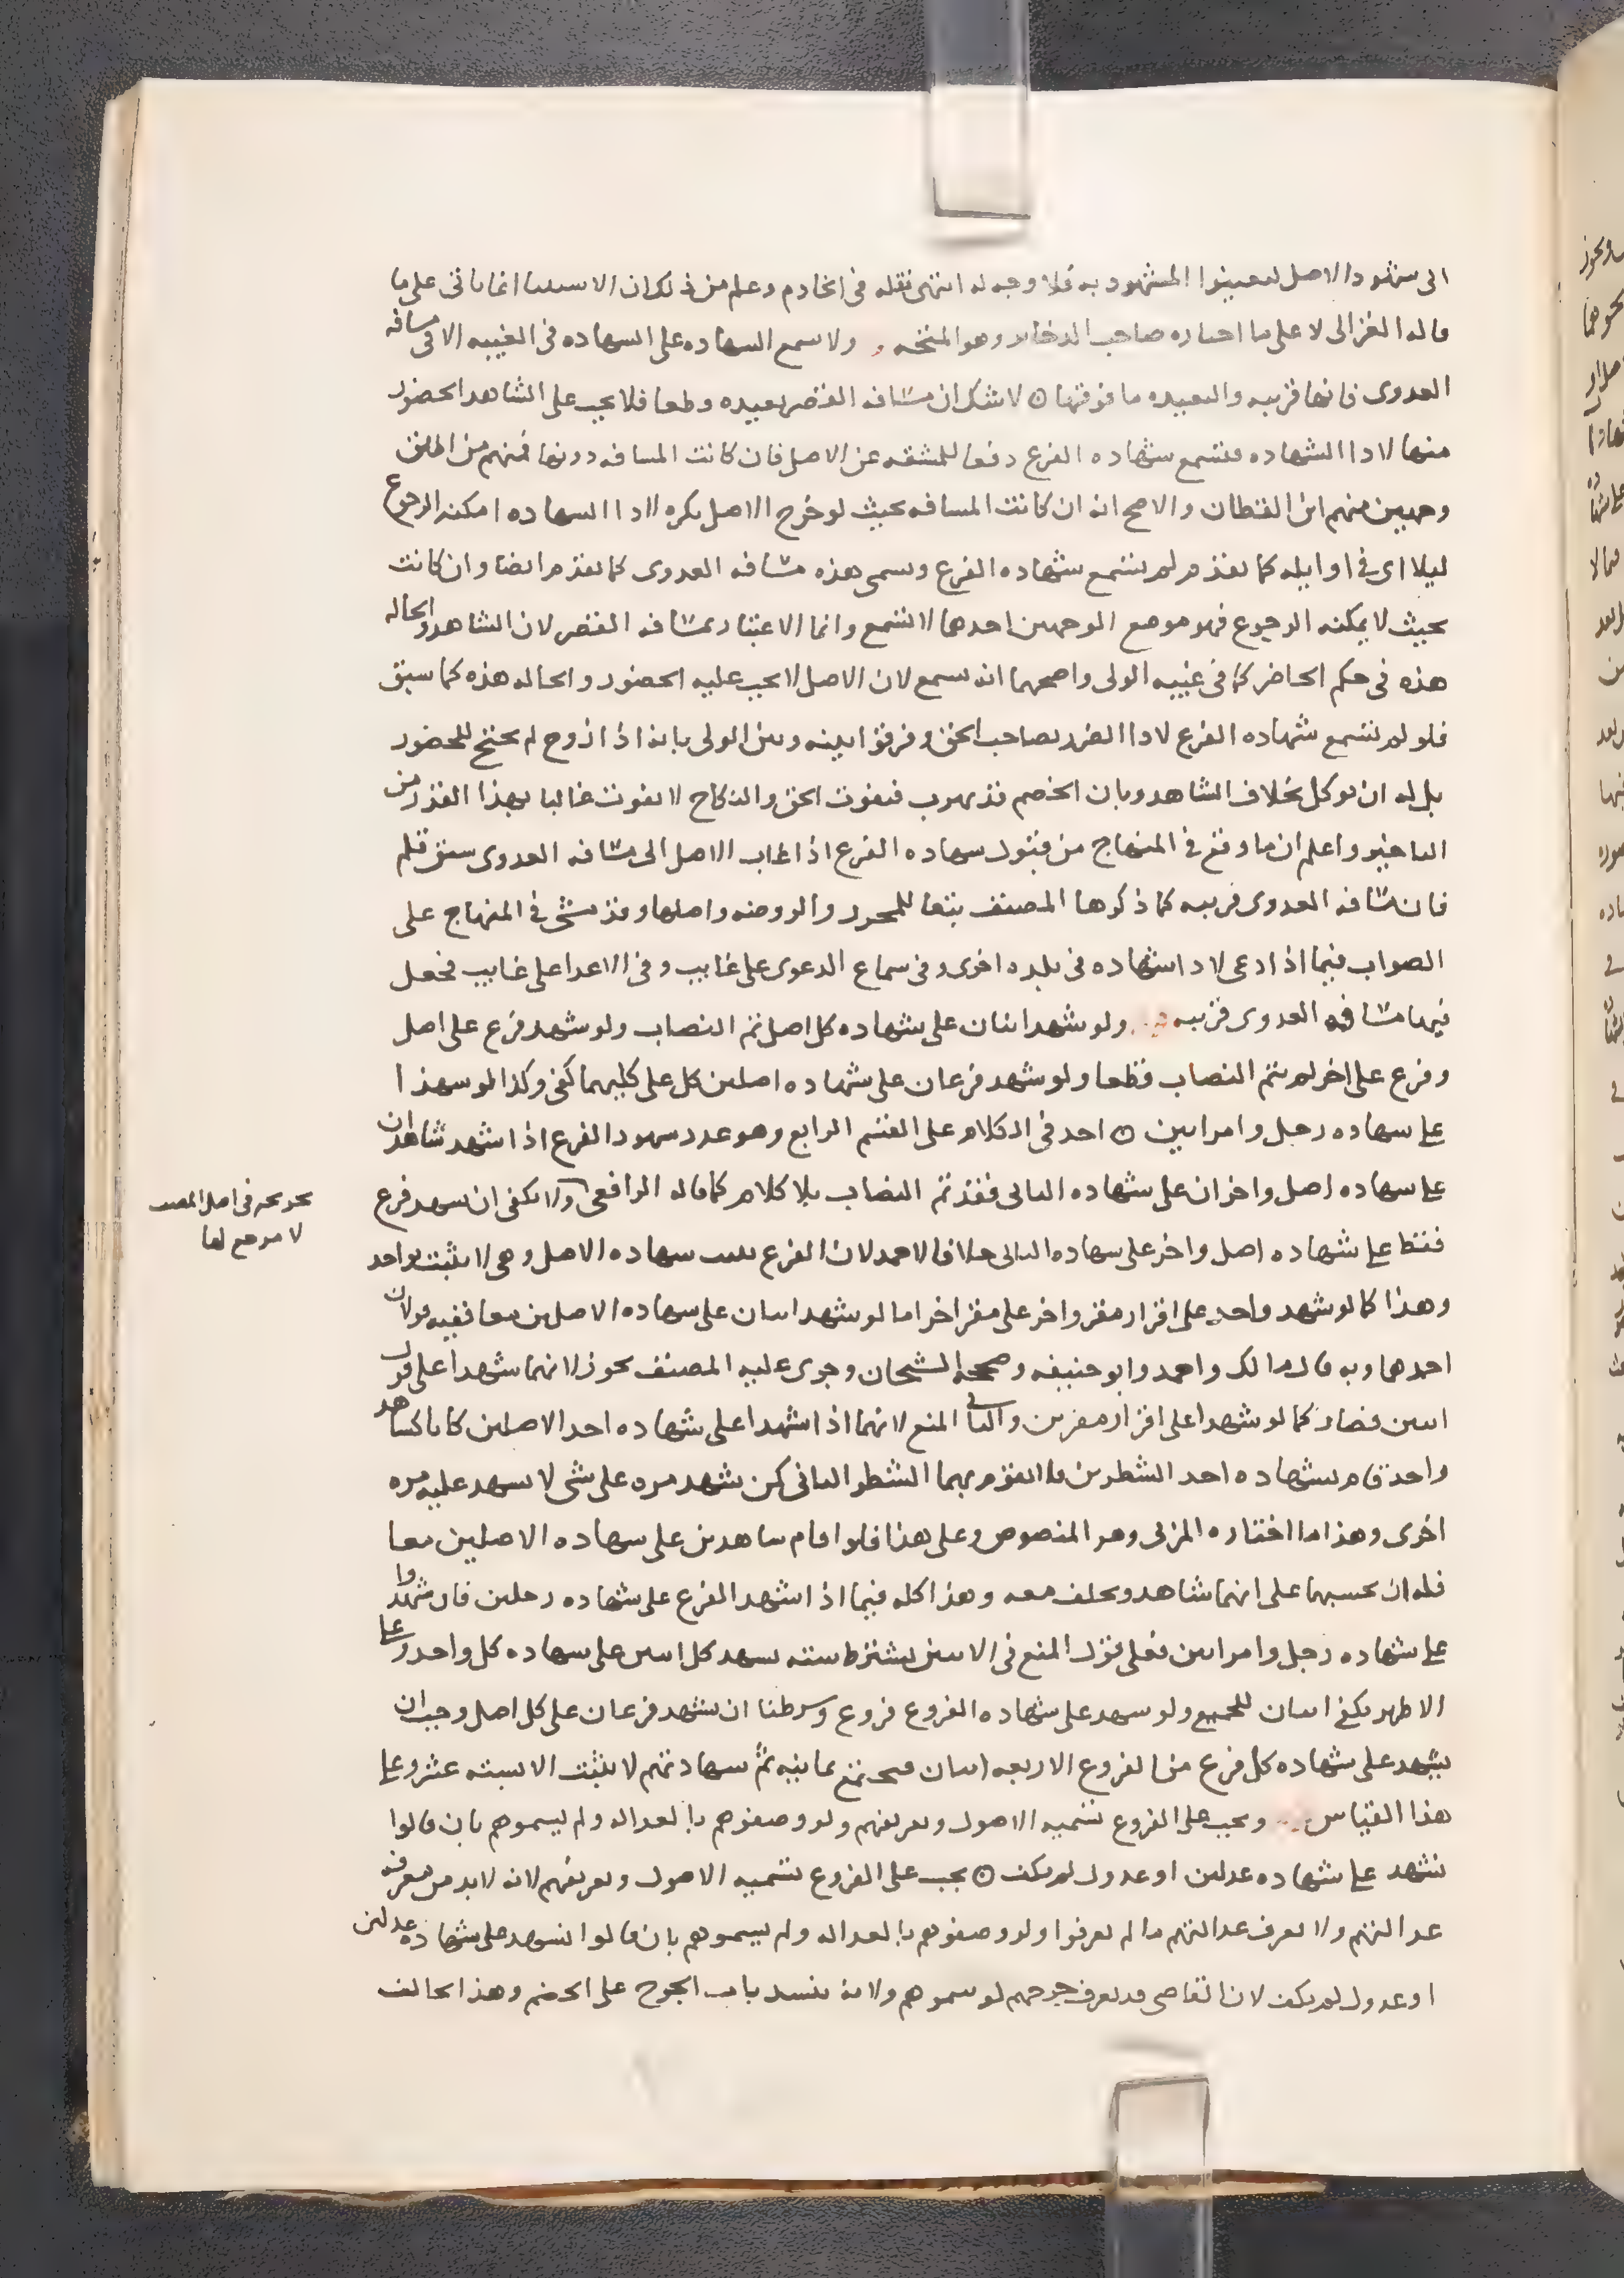 الى شهود الاصل لتعينوا المشهود به فلا وجه له انتهى نقله فى الخادم وعلم من ذلك ان الاستثنا انما ياتى على ما
قاله الغزالى لا على ما اختاره صاحب الدخاير وهو المتجه ولا تسمع الشهاده على الشهاده فى الغيبه الا فى مسافه
العدوى فانها قريبه والبعيده ما فوقها ○ لا شك ان مسافه القصر بعيده قطعا فلا يجب على الشاهد الحضور
منها لادا الشهاده فتسمع شهاده الفرع دفعا للمشقه عن الاصل فان كانت المسافه دونها فمنهم من اطلق
وجهين منهم ابن القطان والاصح انه ان كانت المسافه بحيث لو خرج الاصل بكره لادا الشهاده امكنه الرجوع
ليلا اى فى اوايله كما تقدم لم تسمع شهاده الفرع وتسمى هذه مسافه العدوى كما تقدم ايضا وان كانت
بحيث لا يمكنه الرجوع فهو موضع الوجهين احدها لا تسمع وانما الاعتبار بمسافه القصر لان الشاهد والحاله
هذه فى حكم الحاضر كما فى غيبه الولى واصحهما انه تسمع لان الاصل لا يجب عليه الحضور والحاله هذه كما سبق
فلو لم تسمع شهاده الفرع لادا الضرر بصاحب الحق وفرقوا بينه وبين الولى بانه اذا زوج لم يحتج للحضور
بل له ان يوكل بخلاف الشاهد وبان الخصم قد يهرب فيفوت الحق والنكاح لا يفوت غالبا بهذا القدر من
التاخير واعلم ان ما وقع فى المنهاج من قبول شهاده الفرع اذا غاب الاصل الى مسافه العدوى سبق قلم
فان مسافه العدوى قريبه كما ذكرها المصنف تبعا للمحرر والروضه واصلها وقد مشى فى المنهاج على
الصواب فيما اذا دعى لادا شهاده فى بلده اخرى وفى سماع الدعوى على غايب وفى الاعدا على غايب فجعل
فيها مسافه العدوى قريبه ولو شهد اثنان على شهاده كل اصل تم النصاب ولو شهد فرع على اصل
وفرع على اخر لم يتم النصاب قطعا ولو شهد فرعان على شهاده اصلين كل على كليهما كفى وكذا لو شهدا
على شهاده رجل وامراتين ○ احد فى الكلام على القسم الرابع وهو عدد شهود الفرع اذا شهد شاهدان
على شهاده اصل واخران على شهاده الثانى فقد تم النصاب بلا كلام كما قاله الرافعى ولا يكفى ان يشهد فرع
فقط على شهاده اصل واخر على شهاده الثانى خلافا لاحمد لان الفرع يثبت شهاده الاصل وهى لا تثبت بواحد
وهذا كما لو شهد واحد على اقرار مقر واخر على مقر اخر اما لو شهد اثنان على شهاده الاصلين معا ففيه قولان
احدها وبه قال مالك واحمد وابو حنيفه وصححه الشيخان وجرى عليه المصنف يجوز لانهما شهدا على قول
اثنين فصار كما لو شهدا على اقرار مقرين والثانى المنع لانهما اذا شهدا على شهاده احد الاصلين كانا كشاهد
واحد قام بشهاده احد الشطرين فلا تقوم بهما الشطر الثانى كمن شهد مره على شى لا يشهد عليه مره
اخرى وهذا ما اختاره المزنى وهو المنصوص وعلى هذا فلو اقام شاهدين على شهاده الاصلين معا
فله ان يحسبهما على انهما شاهد ويحلف معه وهذا كله فيما اذا شهد الفرع على شهاده رجلين فان شهدوا
على شهاده رجل وامراتين فعلى قول المنع فى الاثنين يشترط سته يشهد كل اثنين على شهاده كل واحد وعلى
الاظهر يكفى اثنان للجميع ولو شهد على شهاده الفروع فروع وشرطنا ان يشهد فرعان على كل اصل وجب ان
يشهد على شهاده كل فرع من الفروع الاربعه اثنان فيجتمع ثمانيه ثم شهادتهم لا تثبت الا بسته عشر وعلى
هذا القياس ويجب على الفروع تسميه الاصول وتعريفهم ولو وصفوهم بالعداله ولم يسموهم بان قالوا
نشهد على شهاده عدلين او عدول لم يكف ○ يجب على الفروع تسميه الاصول وتعريفهم لانه لا بد من معرفه
عدالتهم ولا تعرف عدالتهم ما لم يعرفوا ولو وصفوهم بالعداله ولم يسموهم بان قالوا نشهد على شهاده عدلين
او عدول لم يكف لان القاضى قد يعرف جرحهم لو سموهم ولانه ينسد باب الجرح على الخصم وهذا يخالف
فى اصل المصنف
لا موضع لها